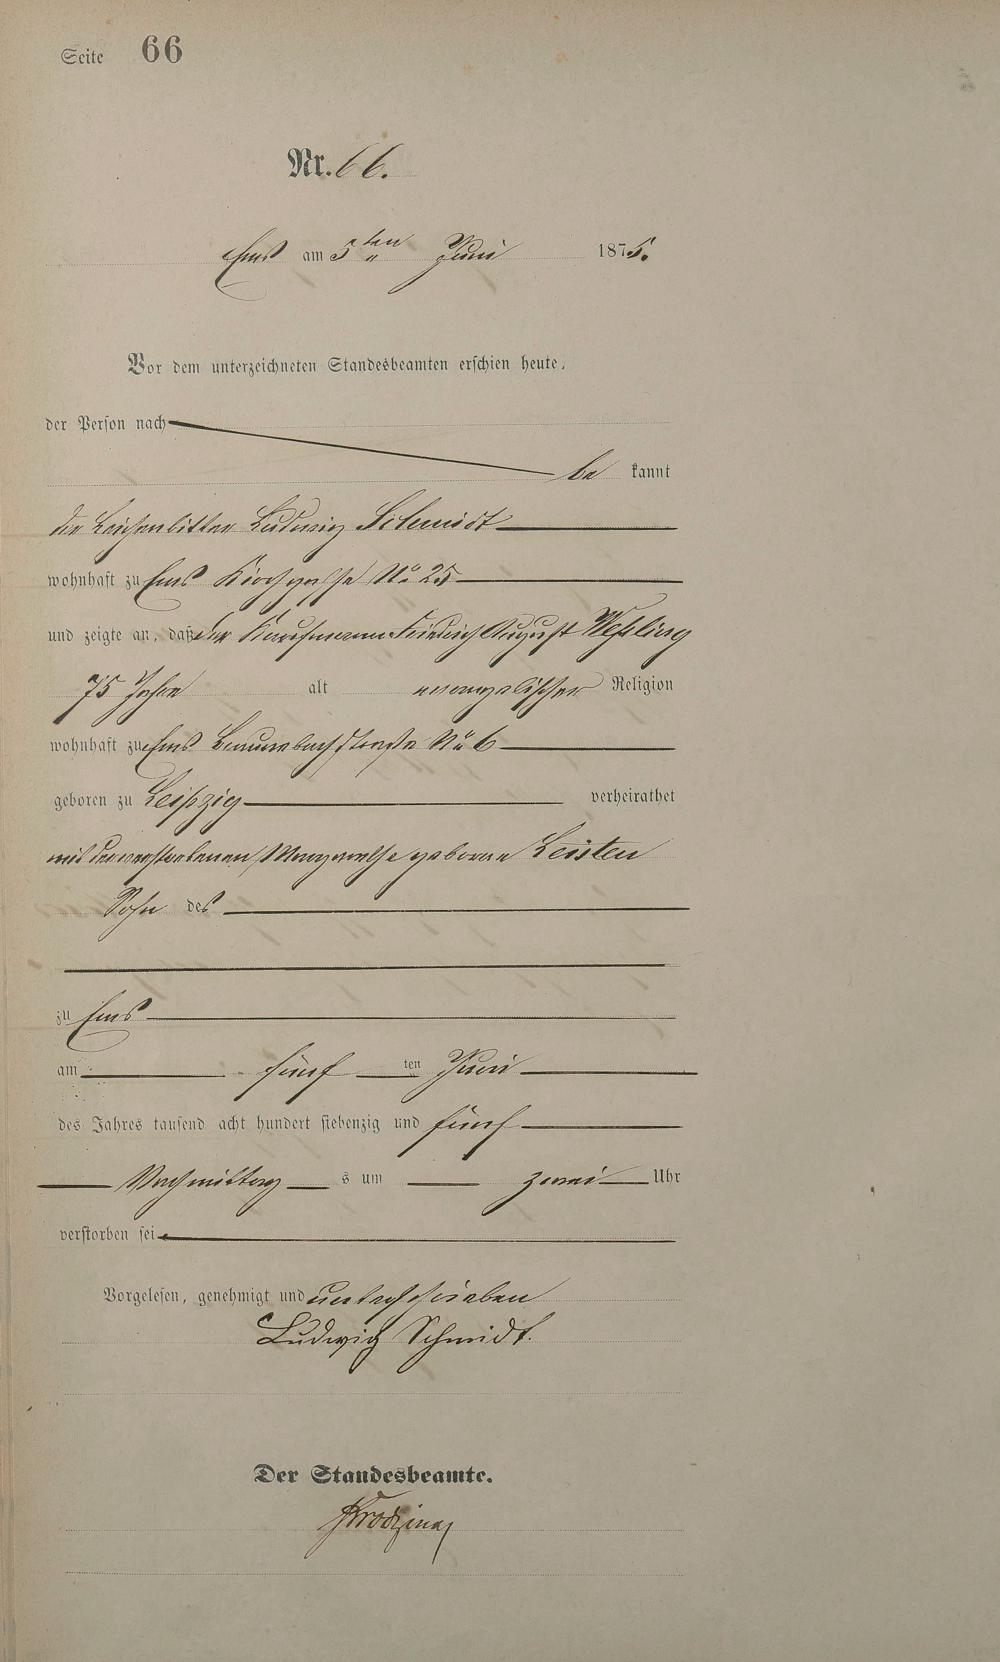 Seite 66
Nr. 66.
Ems am 5ten Juni 1875.
Vor dem unterzeichneten Standesbeamten erschien heute,
der Person nach
be kannt
der Leichenbitter Ludwig Schmidt
wohnhaft zu Ems Kirchgasse No 25
und zeigte an, daß der Kaufmann Friedrich August Weßling
75 Jahre alt evangelischer Religion
wohnhaft zu Ems Braunebachstraße No 6
geboren zu Leipzig verheirathet
mit der verstorbenen Margarethe geborne Leisten
Sohn des
zu Ems
am fünf ten Juni
des Jahres tausend acht hundert siebenzig und fünf
Nachmittag s um zwei Uhr
verstorben sei
Vorgelesen, genehmigt und unterschrieben
Ludwig Schmidt.
Der Standesbeamte.